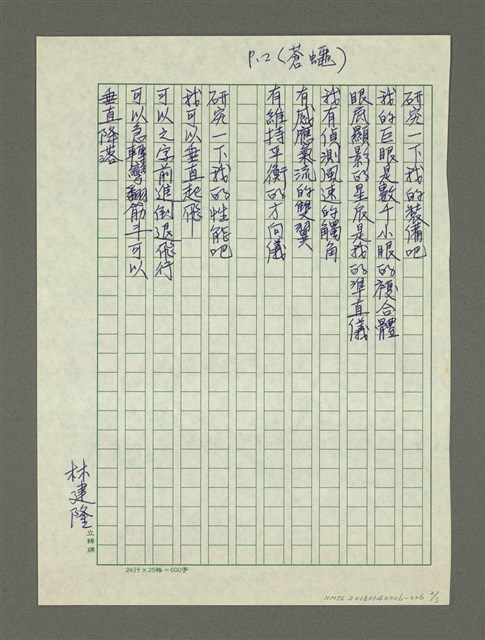 P.2(蒼蠅)
研究一下我的裝備吧
我的巨眼是數千小眼的複合體
眼底顯影的星辰是我的準直儀
我有偵測風速的觸角
有感應氣流的雙翼
有維持平衡的方向儀
研究一下我的性能吧
我可以垂直起飛
可以之字前進倒退飛行
可以急轉彎翻筋斗可以
垂直降落
林建隆
立釋牌
24行×25格=600字
NMTL20180140006-006 2/3